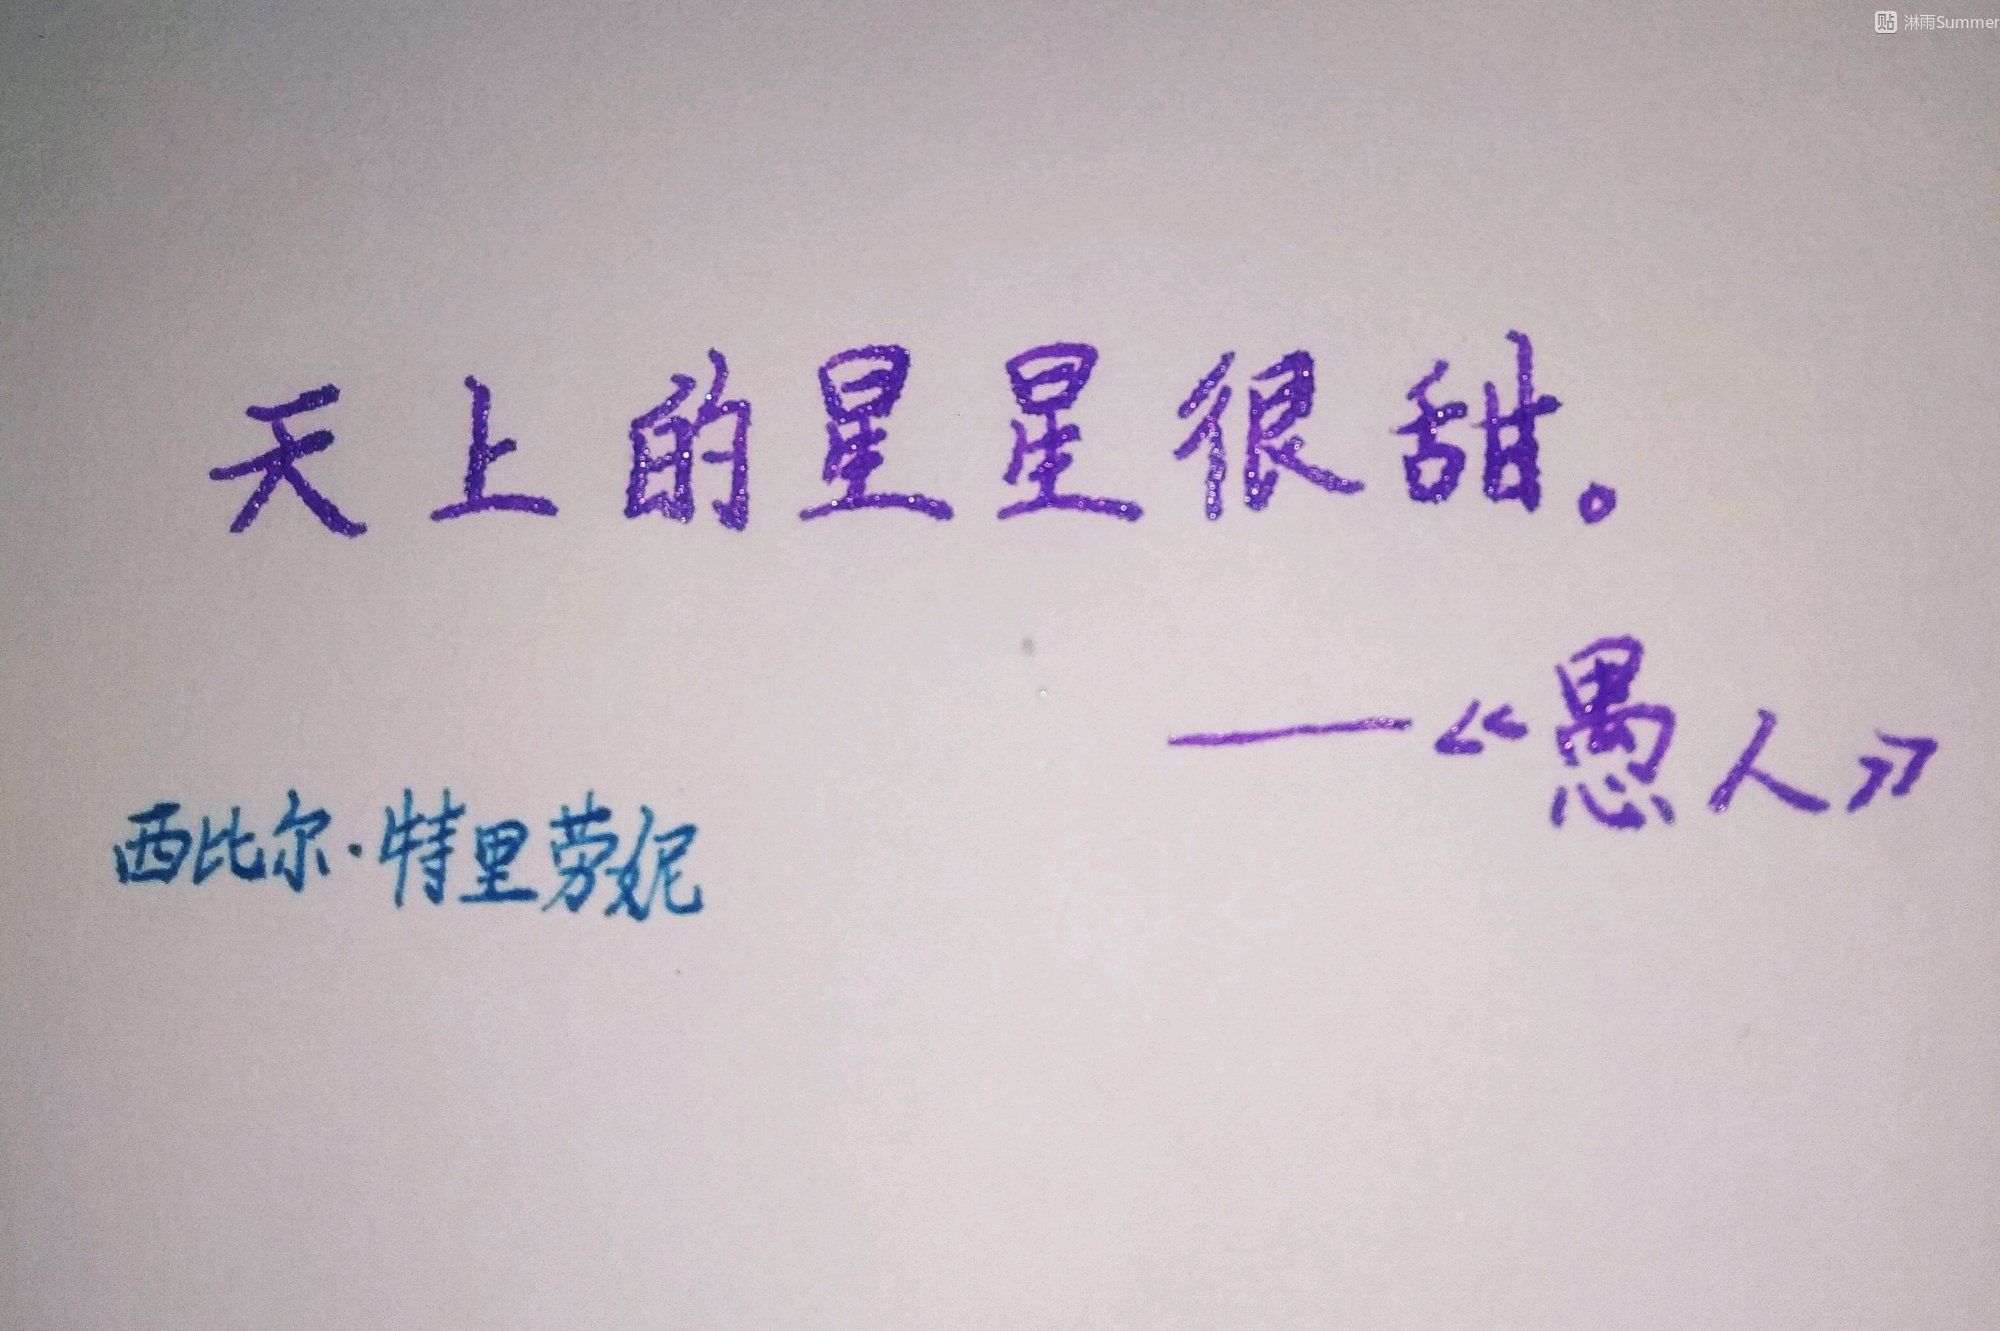 淋雨Summer
天上的星星很甜。
—《愚人》
西比尔·特里劳妮